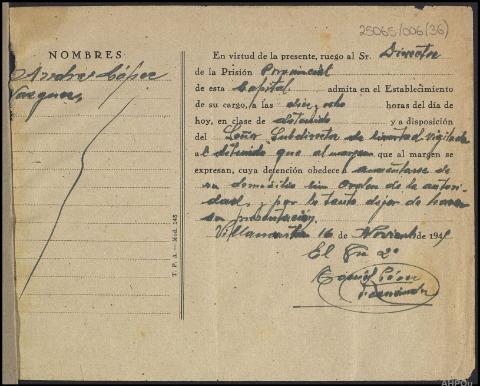 25065/006(36)
NOMBRES
Andres López
Vazquez
En virtud de la presente, ruego al Sr. Director
de la Prisión Provincial
de esta Capital admita en el Establecimiento
de su cargo, a las diez y ocho horas del día de
hoy, en clase de detenido y a disposición
del Señor Subdirector de Libertad Vigilada
al detenido que al margen que al margen se
expresan, cuya detención obedece a ausentarse de
su domicilio sin orden de la autori-
dad, y por lo tanto dejar de hacer
su presentacion.
16 de Noviembre de 194
El
Fernández
T. P. A. — Mod. 148
AHPOu